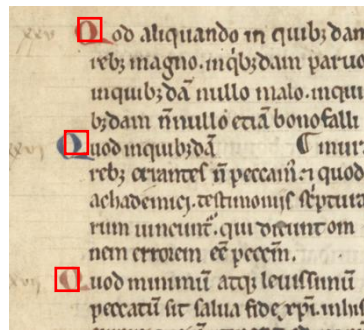 xxv Quod aliquando in quibꝫ dam
rebꝫ magno. in qͥbꝫdam paruo
in quibꝫdā nullo malo. in qui
bꝫdam n̄ nullo etiā bono falli
Quod in quibꝫdā
rebꝫ errantes n̄ peccam̄. ⁊ quod
achademici. testimonijs sc̄ptura
rum uincunt̄. qui dicunt om
nem errorem ee̅ pecc̄m.
Quod minimū atqꝫ leuissimū
peccatū sit salua fide. xp̄i. inlus